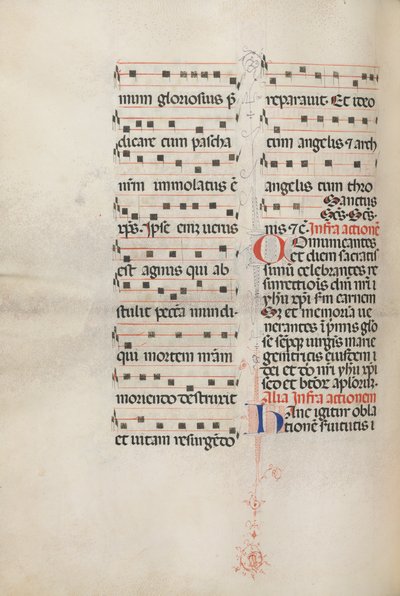 mum gloriosius p̄
dicare cum pascha
nr̄m immolatus ē
xp̄s. Ipse eni uerus
est agnus qui ab
stulit pecc̄a mundi.
qui mortem nr̄am
moriendo destruxit
et uitam resurgēdo
reparauit. Et ideo
cum angelis ⁊ arch
angelis cum thro
Sanctus
Sc̄s. Sc̄s.
nis ⁊c̄. Infra actionē
Comunicantes
et diem sacratis
simū celebrantes re
surrectiois dn̄i nr̄i
yh̄u xp̄i s̄m carnem
Sz et memoria ue
nerantes īp̄mis glo
se semp uirgis marie
genitricis eiusdem
dei et do nr̄i yh̄u xp̄i
sed et btor̄ aplor̄um.
Alia Infra actionem
Hanc igitur obla
tionem seruitutis